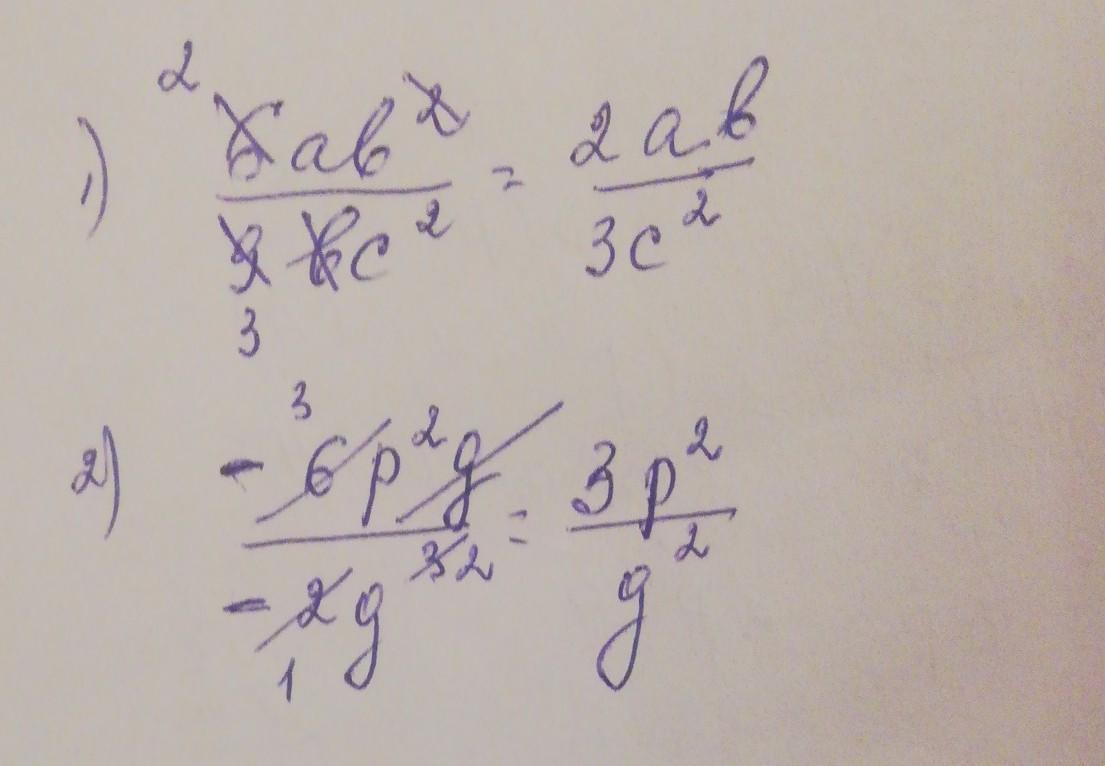 1) 2 6ab² / 9bc² 3 = 2ab / 3c²
2) 3 -6p²g / -2g³ 2 1 = 3p² / g²